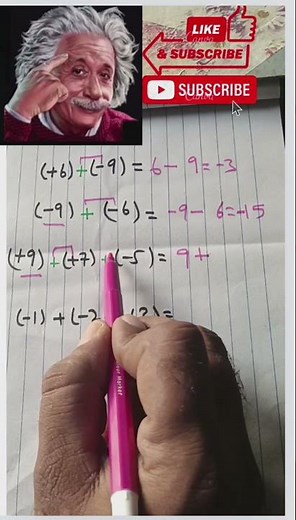 LIKE
Canva
& SUBSCRIBE
SUBSCRIBE
Canva
(+6) + (-9) = 6 - 9 = -3
(-9) + (-6) = -9 - 6 = -15
(+9) + (+7) + (-5) = 9 +
(-1) + (-2